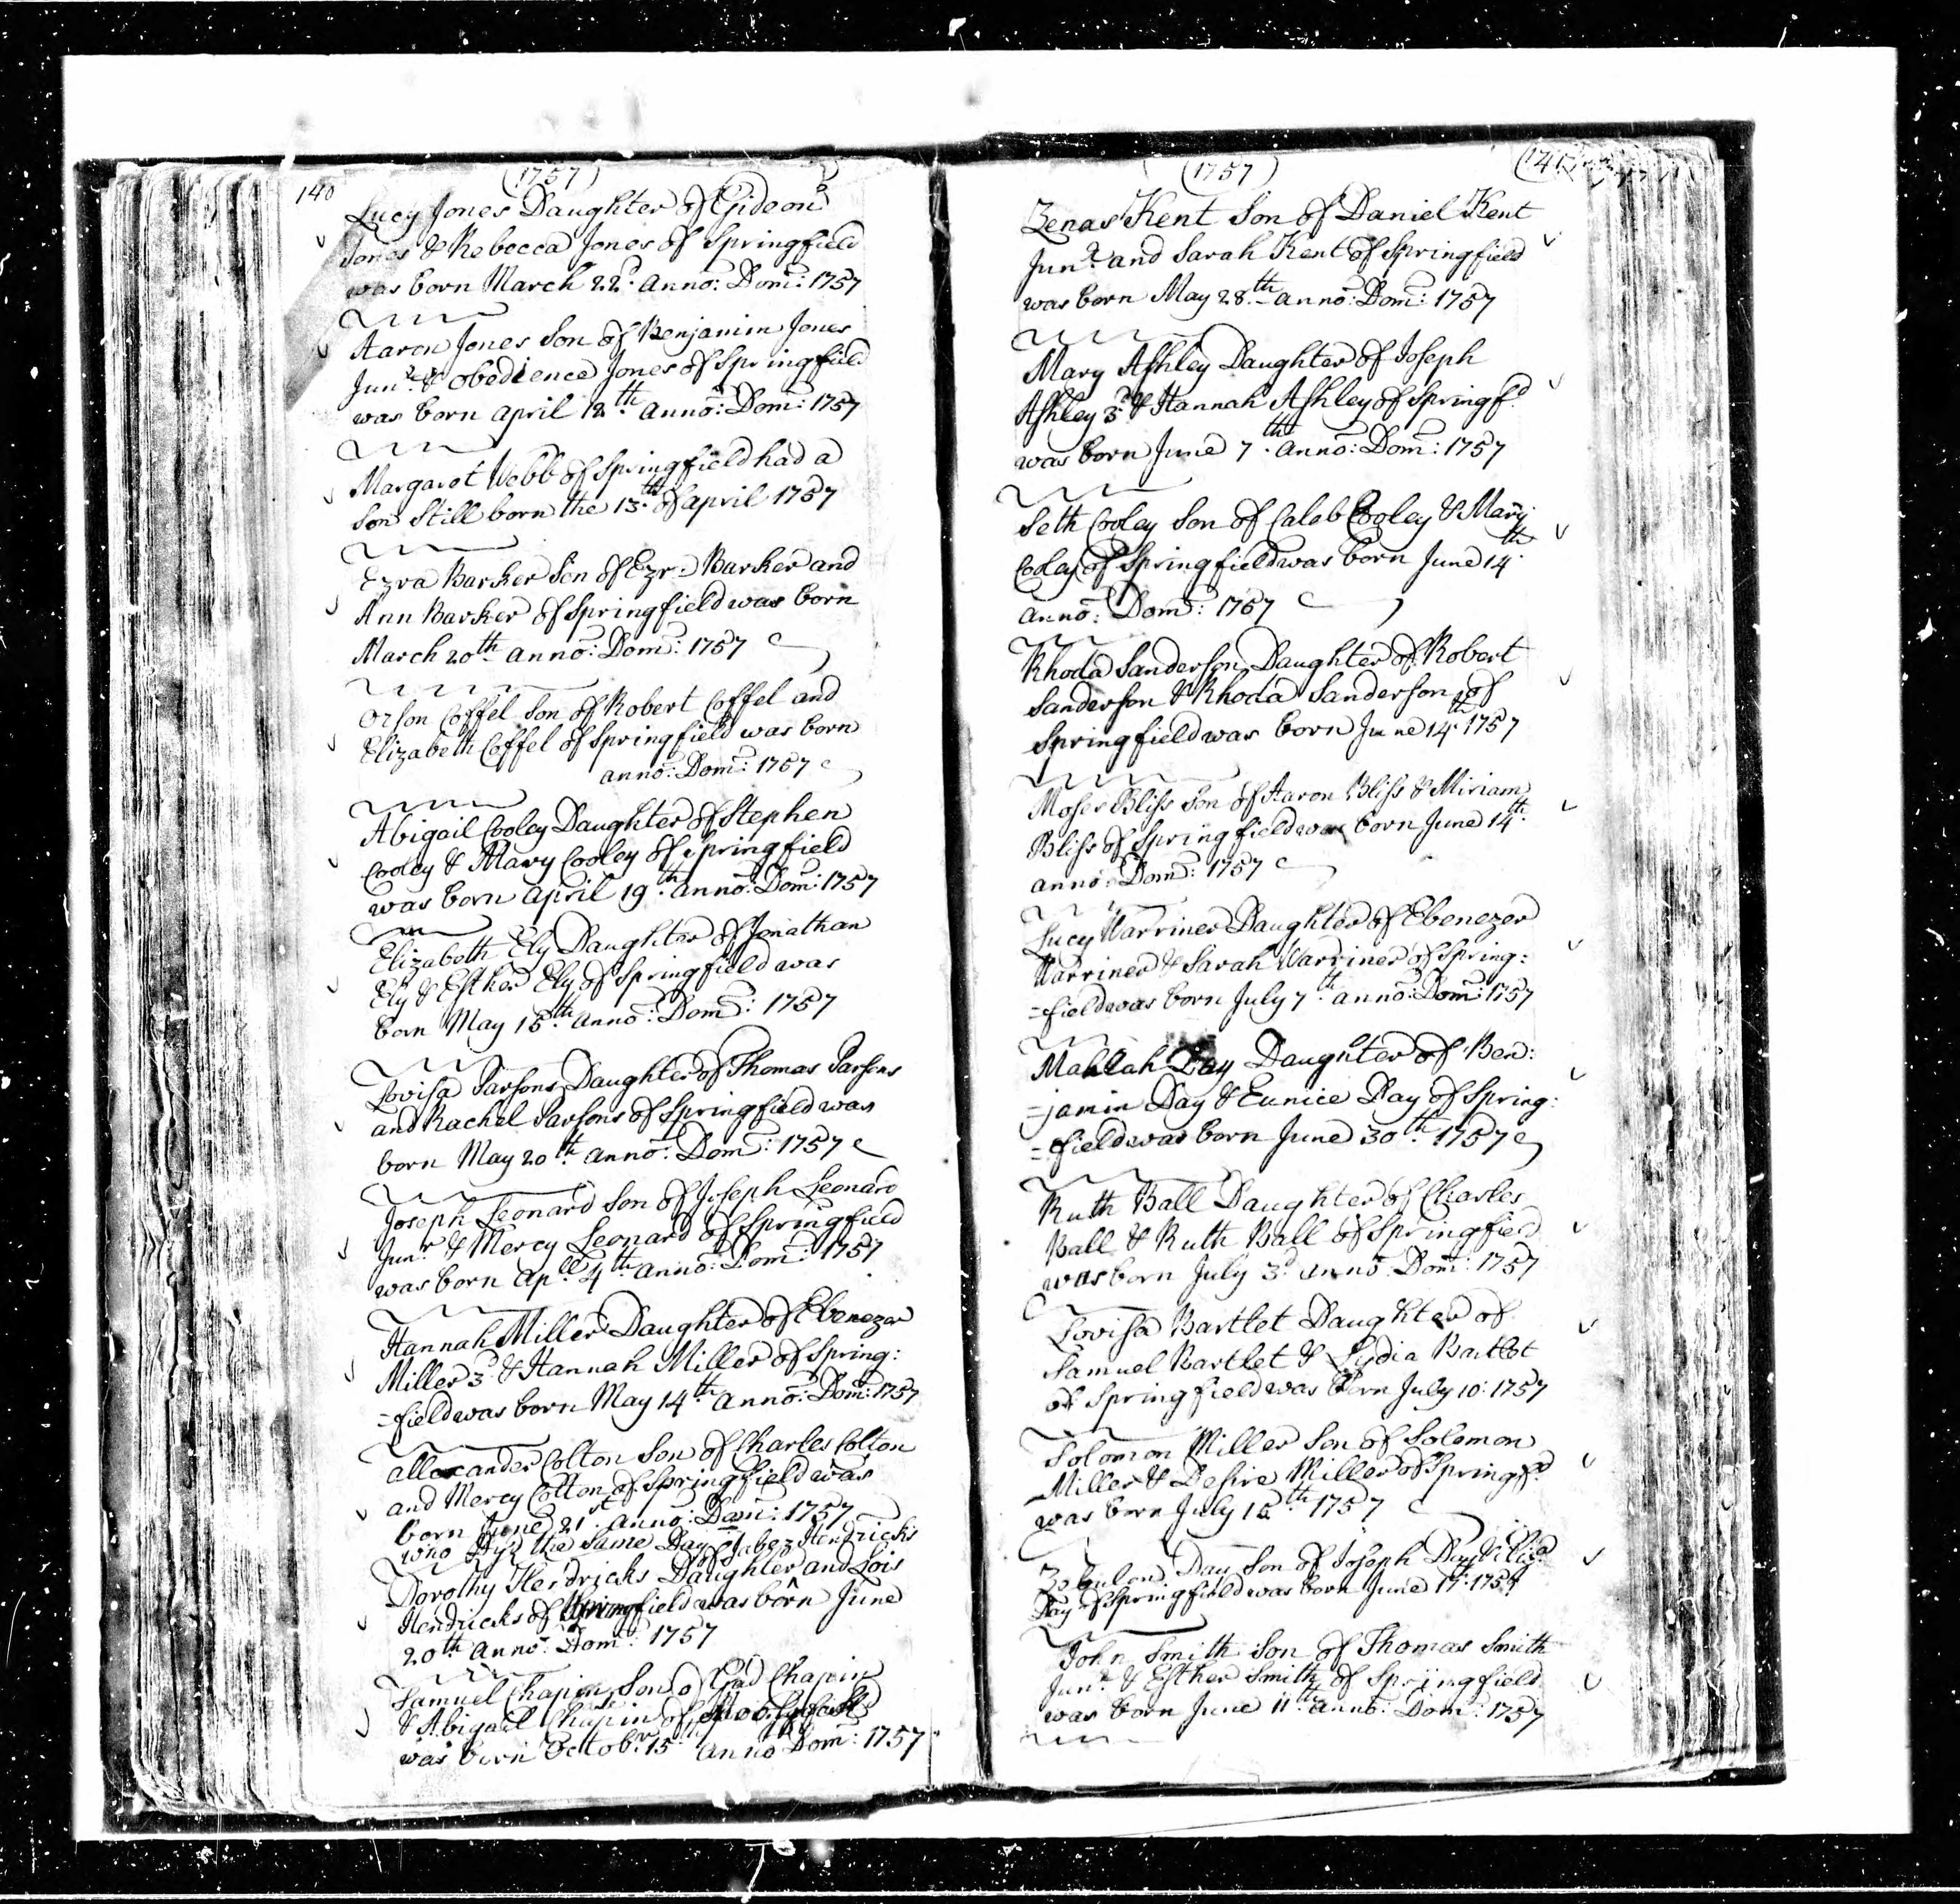 140
(1757)
Lucy Jones Daughter of Gideon
Jones & Rebecca Jones of Springfield
was born March 22d. Anno: Dom: 1757
Aaron Jones Son of Benjamin Jones
Junr. & Obedience Jones of Springfield
was born april 12th. Anno: Dom: 1757
Margaret Webb of Springfield had a
Son Still born the 13th. of april 1757
Ezra Barker Son of Ezra Barker and
Ann Barker of Springfield was born
March 20th Anno: Dom: 1757
Orson Coffel Son of Robert Coffel and
Elizabeth Coffel of Springfield was born
anno: Dom: 1757
Abigail Cooley Daughter of Stephen
Cooley & Mary Cooley of Springfield
was born April 19th. Anno: Dom: 1757
Elizabeth Ely Daughter of Jonathan
Ely & Esther Ely of Springfield was
born May 15th. Anno: Dom: 1757
Lovisa Parsons Daughter of Thomas Parsons
and Rachel Parsons of Springfield was
born May 20th. Anno: Dom: 1757
Joseph Leonard Son of Joseph Leonard
Junr. & Mercy Leonard of Springfield
was born Apll. 4th. Anno: Dom: 1757
Hannah Miller Daughter of Ebenezer
Miller 3d. & Hannah Miller of Spring:
=field was born May 14th. Anno: Dom: 1757
allexander Colton Son of Charles Colton
and Mercy Colton of Springfield was
born June 21st. Anno: Dom: 1757
who Dyd the same Day
of Jabez Hendricks
Dorothy Hendricks Daughter and Lois
Hendricks of Springfield was born June
20th. Anno: Dom: 1757
Samuel Chapin Son of Gad Chapin
& Abigail Chapin of
was born Octobr. 15th Anno Dom: 1757
(1757)
(141)
Zenas Kent Son of Daniel Kent
Junr. and Sarah Kent of Springfield
was born May 28th. anno: Dom: 1757
Mary Ashley Daughter of Joseph
Ashley 3d. & Hannah Ashley of Springfd.
was born June 7th. Anno: Dom: 1757
Seth Cooley Son of Caleb Cooley & Mary
Cooley of Springfield was born June 14th.
anno: Dom: 1757
Rhoda Sanderson Daughter of Robert
Sanderson & Rhoda Sanderson of
Springfield was born June 14th. 1757
Moses Bliss Son of Aaron Bliss & Miriam
Bliss of Springfield was born June 14th.
anno: Dom: 1757
Lucy Warriner Daughter of Ebenezer
Warriner & Sarah Warriner of Spring:
=field was born July 7th. anno: Dom: 1757
Mahlah Day Daughter of Ben:
=jamin Day & Eunice Day of Spring:
=field was born June 30th. 1757
Ruth Ball Daughter of Charles
Ball & Ruth Ball of Springfield
was born July 3d. Anno: Dom: 1757
Lovisa Bartlet Daughter of
Samuel Bartlet & Lydia Bartlet
of Springfield was born July 10: 1757
Solomon Miller Son of Solomon
Miller & Desire Miller of Springfd.
was born July 15th. 1757
Zebulon Day Son of Joseph Day & Eliza.
Day of Springfield was born June 17th. 1757
John Smith Son of Thomas Smith
Junr. & Esther Smith of Springfield
was born June 11th. Anno: Dom: 1757